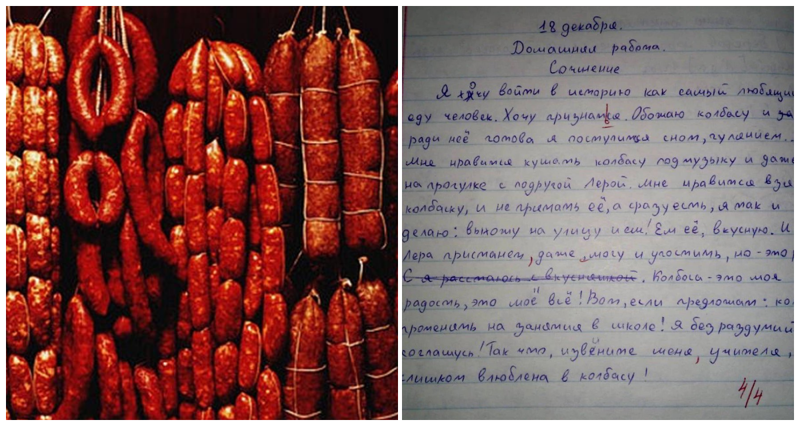 18 декабря.
Домашняя работа.
Сочинение
Я хочу войти в историю как самый любящий
еду человек. Хочу признатся. Обожаю колбасу и
ради неё готова я поступится сном, гулянием...
Мне нравится кушать колбасу под музыку и даже
на прогулке с подругой Лерой. Мне нравится взя
колбаску, и не прятать её, а сразу есть, я так и
делаю: выхожу на улицу и ем! Ем её, вкусную. И
Лера пристанет, даже могу и угостить, но - это
С я расстаюсь с вкусняшкой. Колбаса - это моя
радость, это моё всё! Вот, если предложат: кол
променять на занятия в школе! Я без раздумий
соглашусь! Так что, извените меня, учителя,
слишком влюблена в колбасу!
4/4